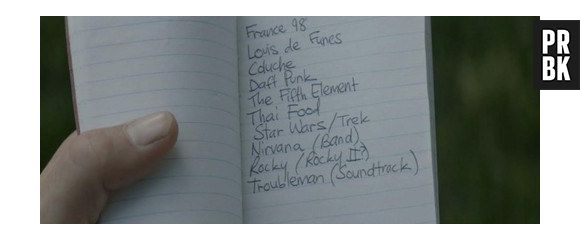 France 98
Louis de Funes
Coluche
Daft Punk
The Fifth Element
Thai Food
Star Wars/Trek
Nirvana (Band)
Rocky (Rocky II?)
Troubleman (Soundtrack)
PR
BK